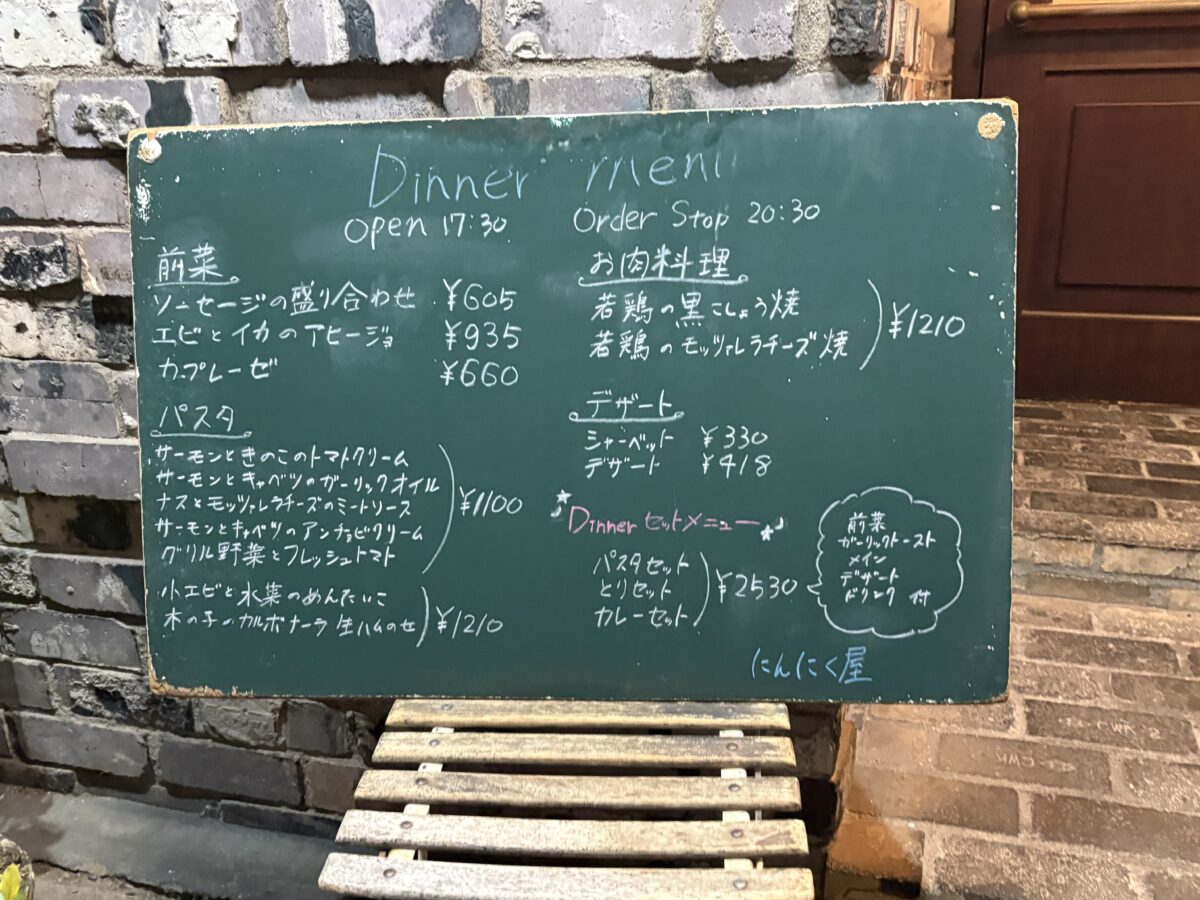 Dinner menu
open 17:30
Order Stop 20:30
前菜
ソーセージの盛り合わせ ¥605
エビとイカのアヒージョ ¥935
カプレーゼ ¥660
パスタ
サーモンときのこのトマトクリーム
サーモンとキャベツのガーリックオイル
ナスとモッツァレラチーズのミートソース
サーモンとキャベツのアンチョビクリーム
グリル野菜とフレッシュトマト
¥1100
小エビと水菜のめんたいこ
木の子のカルボナーラ 生ハムのせ
¥1210
お肉料理
若鶏の黒こしょう焼
若鶏のモッツァレラチーズ焼
¥1210
デザート
シャーベット ¥330
デザート ¥418
Dinner セットメニュー
パスタセット
とりセット
カレーセット
¥2530
前菜
ガーリックトースト
メイン
デザート
ドリンク 付
にんにく屋